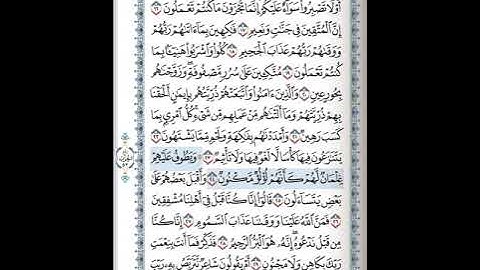 أَوْ لَا تَصْبِرُوا سَوَاءٌ عَلَيْكُمْ إِنَّمَا تُجْزَوْنَ مَا كُنتُمْ تَعْمَلُونَ ١٦
إِنَّ الْمُتَّقِينَ فِي جَنَّاتٍ وَنَعِيمٍ ١٧ فَاكِهِينَ بِمَا آتَاهُمْ رَبُّهُمْ
وَوَقَاهُمْ رَبُّهُمْ عَذَابَ الْجَحِيمِ ١٨ كُلُوا وَاشْرَبُوا هَنِيئًا بِمَا
كُنتُمْ تَعْمَلُونَ ١٩ مُتَّكِئِينَ عَلَى سُرُرٍ مَّصْفُوفَةٍ وَزَوَّجْنَاهُم
بِحُورٍ عِينٍ ٢٠ وَالَّذِينَ آمَنُوا وَاتَّبَعَتْهُمْ ذُرِّيَّتُهُم بِإِيمَانٍ أَلْحَقْنَا
بِهِمْ ذُرِّيَّتَهُمْ وَمَا أَلَتْنَاهُم مِّنْ عَمَلِهِم مِّن شَيْءٍ كُلُّ امْرِئٍ بِمَا
كَسَبَ رَهِينٌ ٢١ وَأَمْدَدْنَاهُم بِفَاكِهَةٍ وَلَحْمٍ مِّمَّا يَشْتَهُونَ ٢٢
يَتَنَازَعُونَ فِيهَا كَأْسًا لَّا لَغْوٌ فِيهَا وَلَا تَأْثِيمٌ ٢٣ وَيَطُوفُ عَلَيْهِمْ
غِلْمَانٌ لَّهُمْ كَأَنَّهُمْ لُؤْلُؤٌ مَّكْنُونٌ ٢٤ وَأَقْبَلَ بَعْضُهُمْ عَلَى
بَعْضٍ يَتَسَاءَلُونَ ٢٥ قَالُوا إِنَّا كُنَّا قَبْلُ فِي أَهْلِنَا مُشْفِقِينَ
٢٦ فَمَنَّ اللَّهُ عَلَيْنَا وَوَقَانَا عَذَابَ السَّمُومِ ٢٧ إِنَّا كُنَّا
مِن قَبْلُ نَدْعُوهُ إِنَّهُ هُوَ الْبَرُّ الرَّحِيمُ ٢٨ فَذَكِّرْ فَمَا أَنتَ بِنِعْمَتِ
رَبِّكَ بِكَاهِنٍ وَلَا مَجْنُونٍ ٢٩ أَمْ يَقُولُونَ شَاعِرٌ نَّتَرَبَّصُ بِهِ رَيْبَ